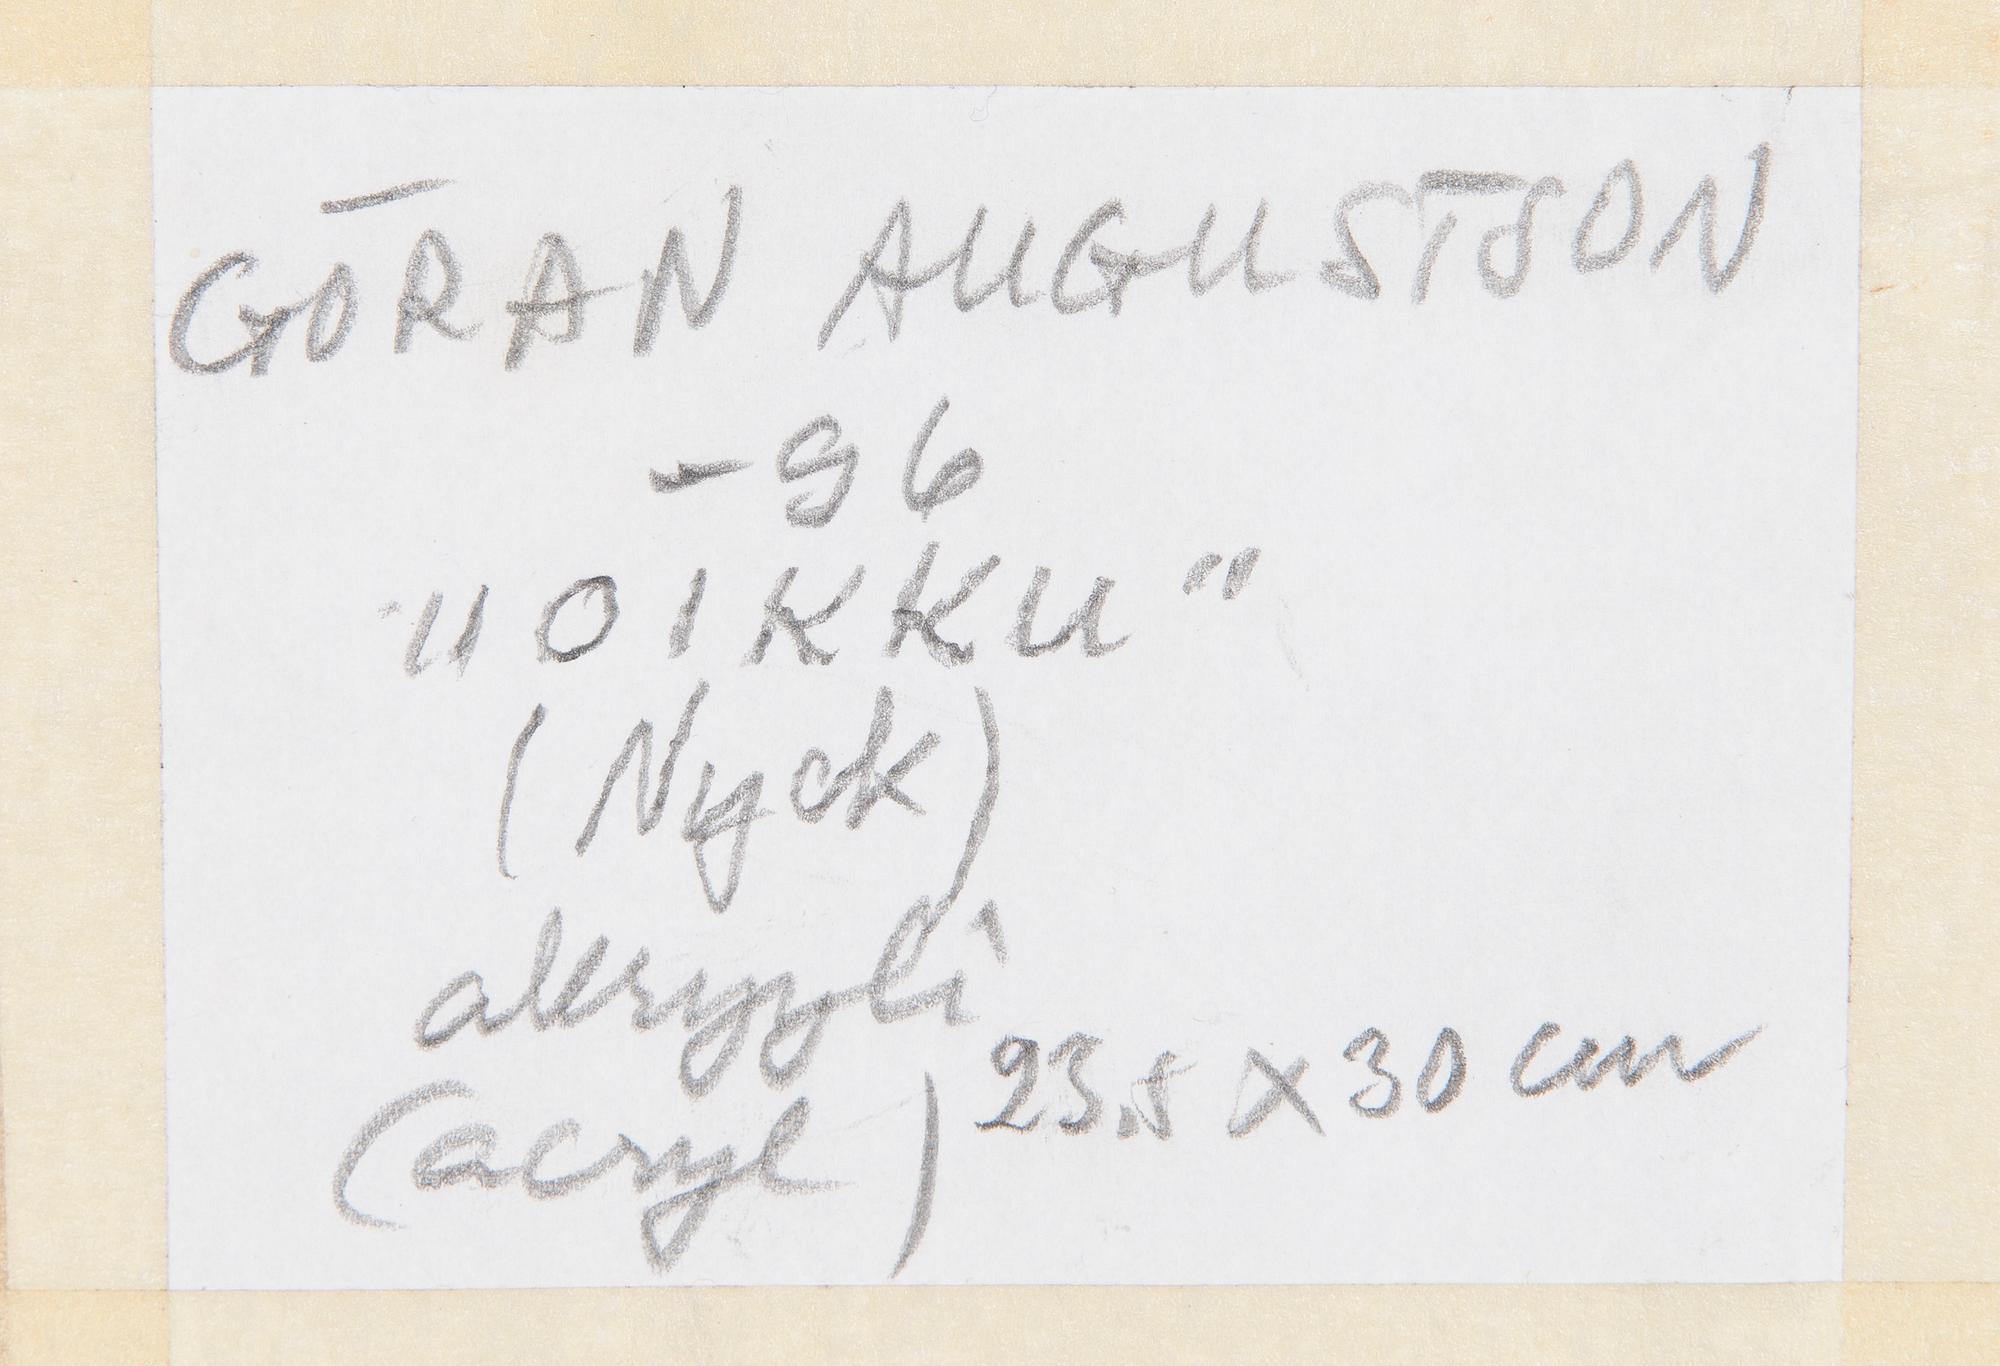 GÖRAN AUGUSTSON
-96
"OIKKU"
(Nyck)
akryyli
(acryl) 23,5 X 30 cm